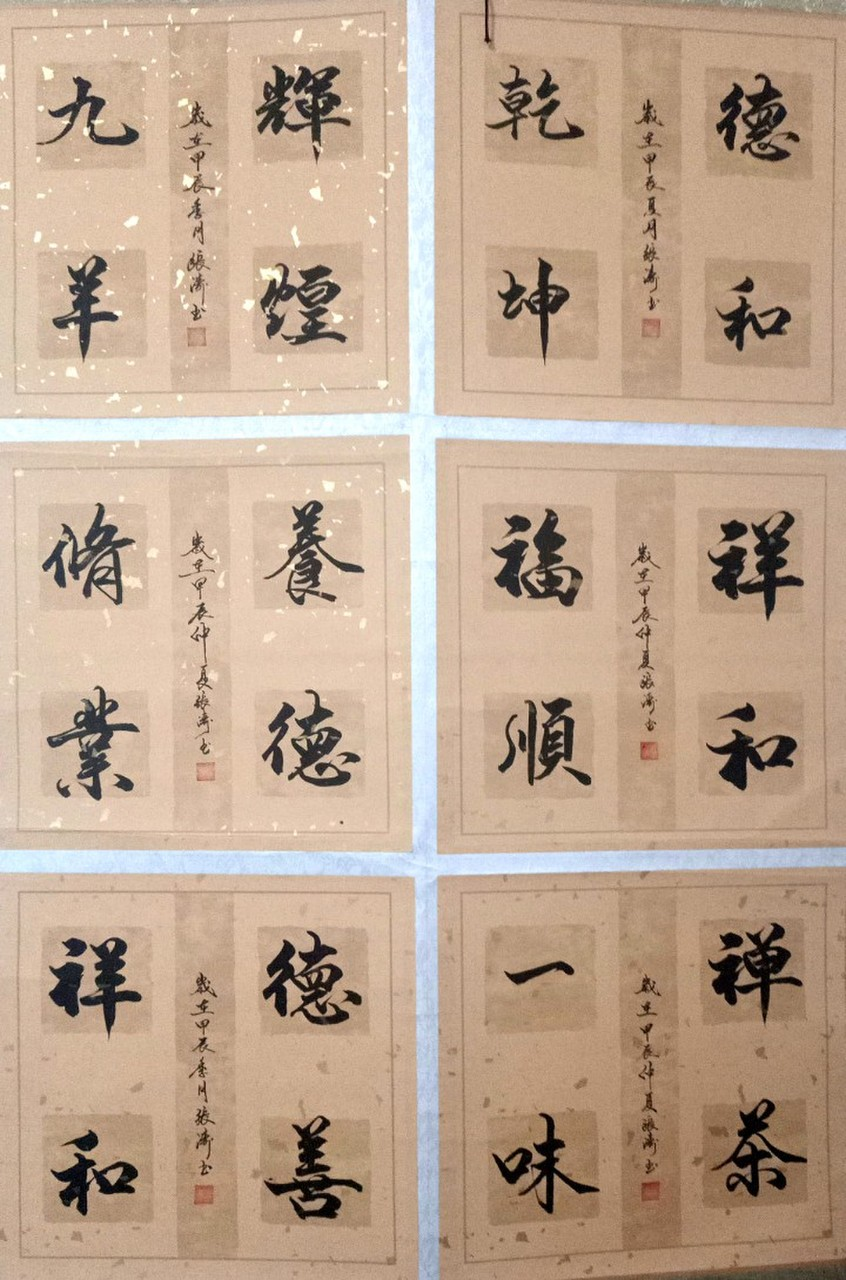 輝煌
歲在甲辰季月張濤書
九羊
德和
歲在甲辰夏月張濤書
乾坤
養德
歲在甲辰仲夏張濤書
脩業
祥和
歲在甲辰仲夏張濤書
福順
德善
歲在甲辰季月張濤書
祥和
禅茶
歲在甲辰仲夏張濤書
一味